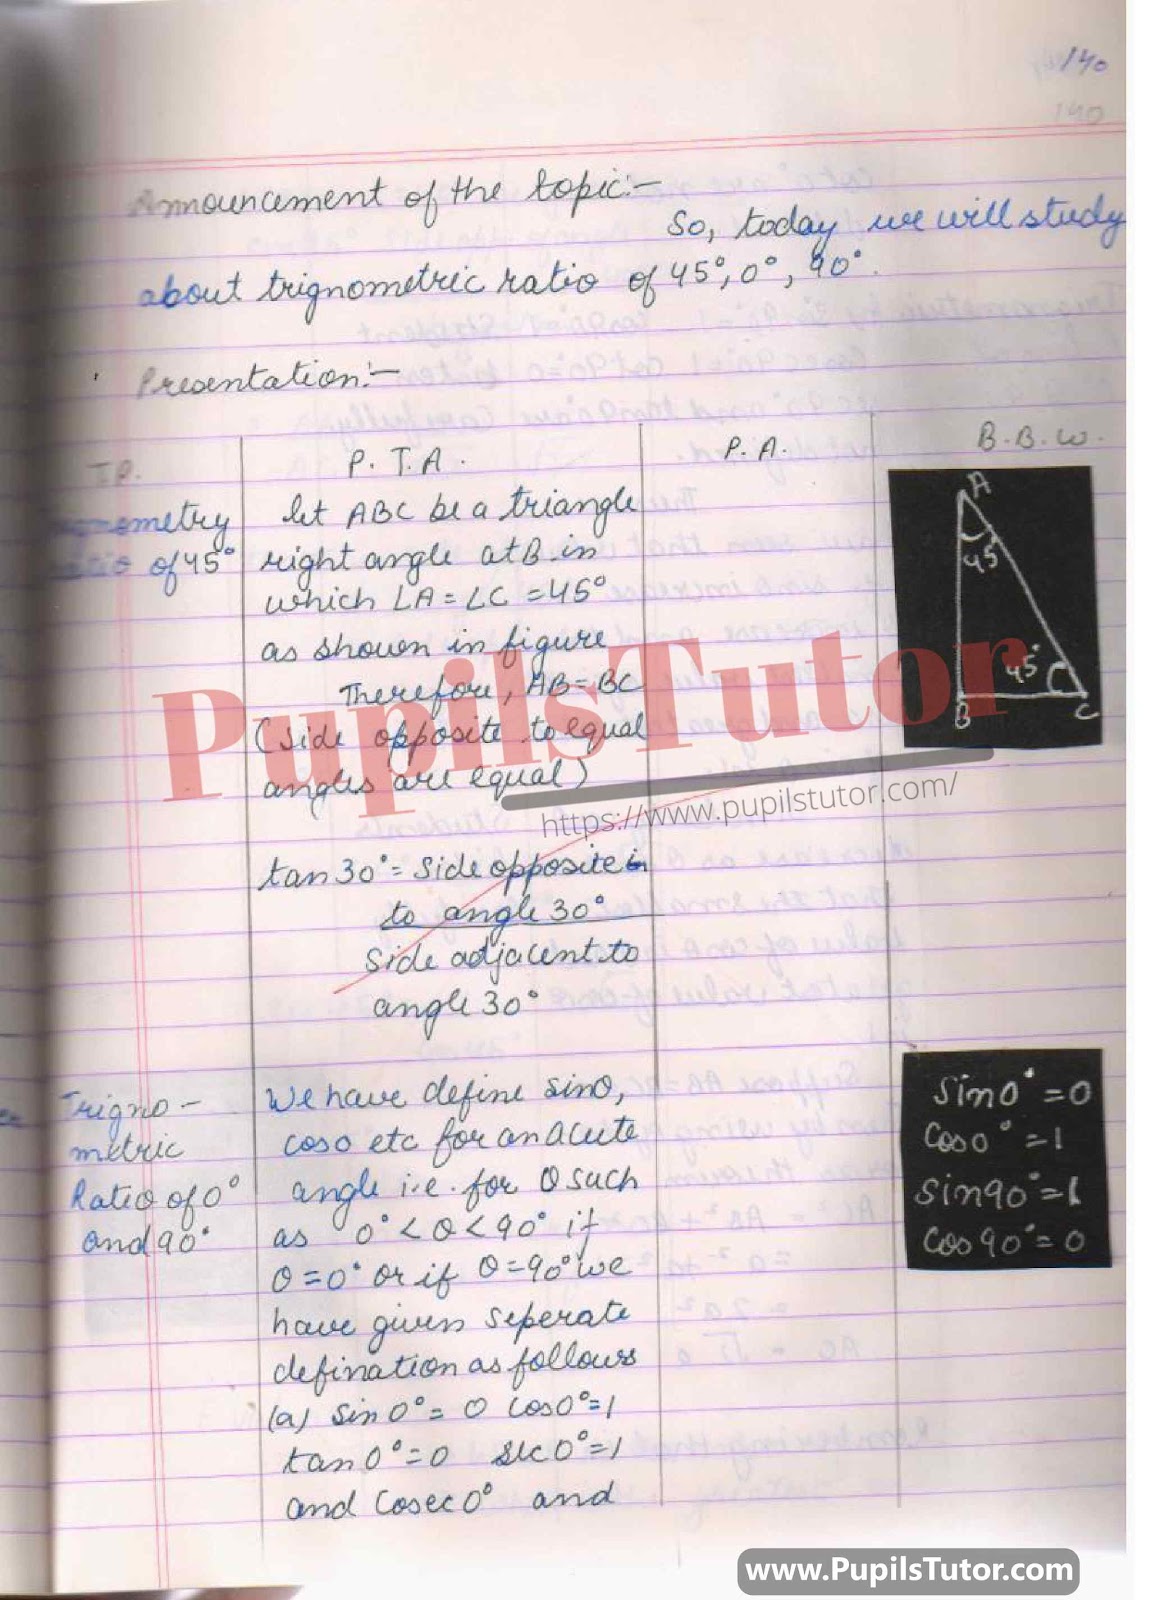 140
140
Announcement of the topic:-
So, today we will study
about trignometric ratio of 45°, 0°, 90°.
Presentation:-
T.P.
P.T.A.
P.A.
B.B.W.
ratio of 45°
let ABC be a triangle
right angle at B in
which ∠A = ∠C = 45°
as shown in figure
Therefore, AB = BC
(side opposite to equal
angles are equal)
tan 30° = Side opposite in
to angle 30°
Side adjacent to
angle 30°
A
45
45°
B
C
Trigno-
metric
Ratio of 0°
and 90°
We have define sinθ,
cosθ etc for an acute
angle i.e. for θ such
as 0° < θ < 90° if
θ = 0° or if θ = 90° we
have given seperate
defination as follows
(a) sin 0° = 0 cos 0° = 1
tan 0° = 0 sec 0° = 1
and Cosec 0° and
Sin 0° = 0
Cos 0° = 1
Sin 90° = 1
Cos 90° = 0
PupilsTutor
https://www.pupilstutor.com/
www.PupilsTutor.com